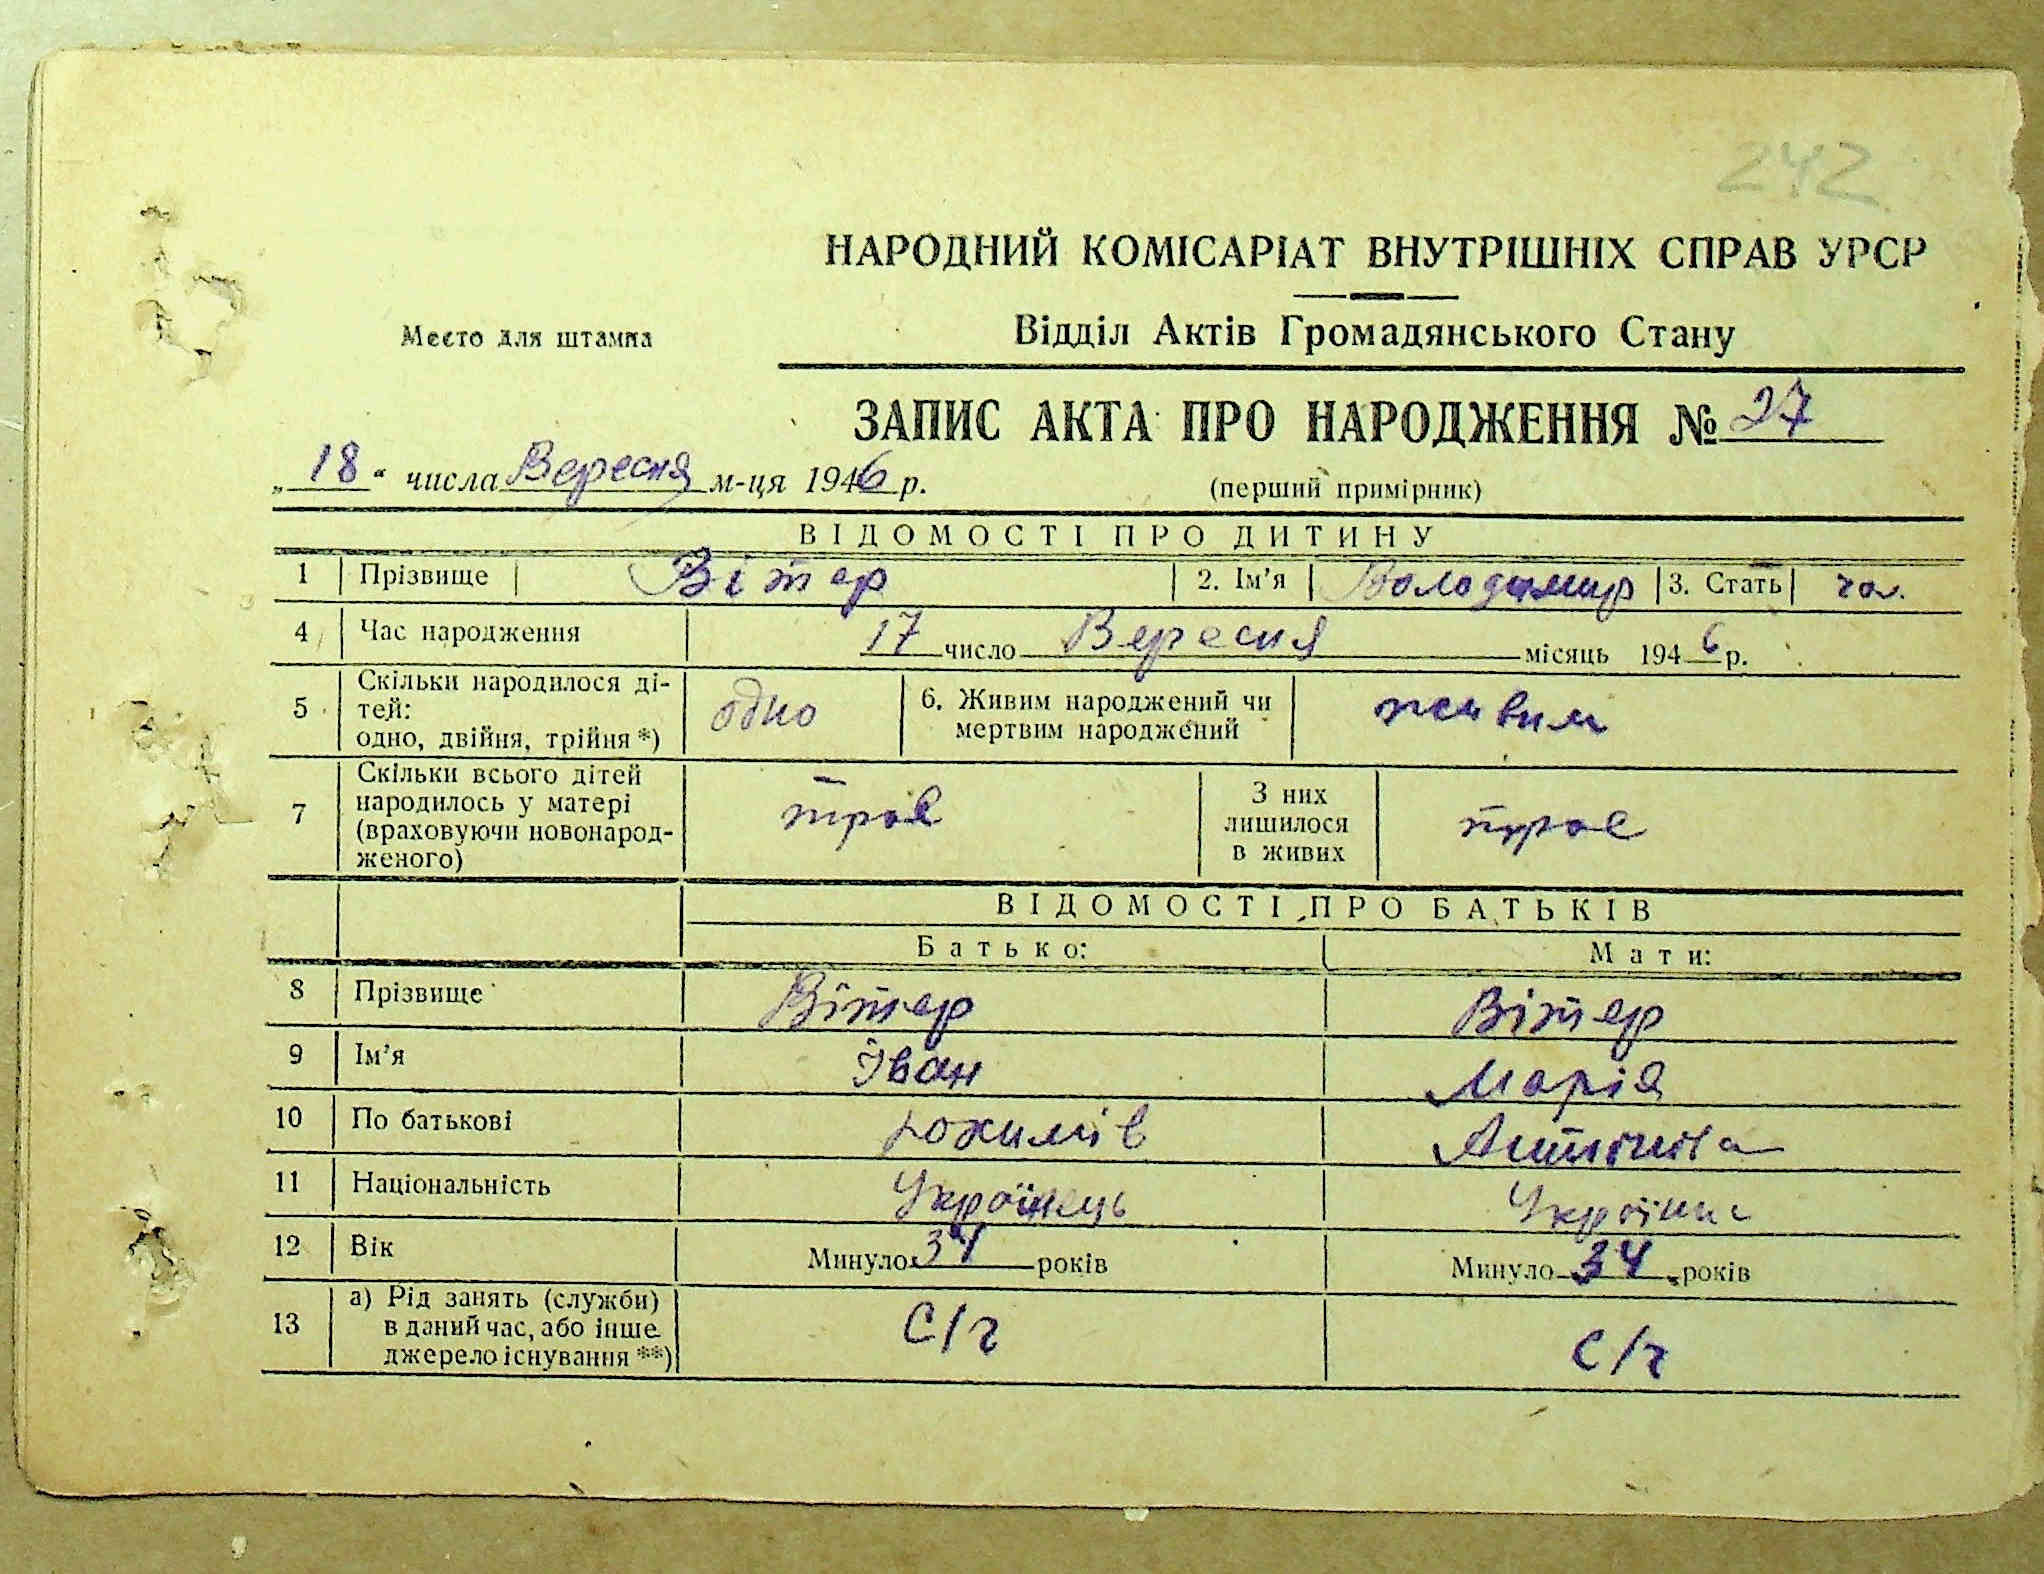 242
НАРОДНИЙ КОМІСАРІАТ ВНУТРІШНІХ СПРАВ УРСР
Место для штампа
Відділ Актів Громадянського Стану
ЗАПИС АКТА ПРО НАРОДЖЕННЯ № 27
„18" числа Вересня м-ця 1946 р.
(перший примірник)
ВІДОМОСТІ ПРО ДИТИНУ
1 Прізвище Вітер 2. Ім'я Володимир 3. Стать чол.
4 Час народження 17 число Вересня місяць 1946 р.
5 Скільки народилося ді-
тей:
одно, двійня, трійня *) одно
6. Живим народжений чи
мертвим народжений живим
7 Скільки всього дітей
народилось у матері
(враховуючи новонарод-
женого) троє
З них
лишилося
в живих троє
ВІДОМОСТІ ПРО БАТЬКІВ
Батько: Мати:
8 Прізвище Вітер Вітер
9 Ім'я Іван Марія
10 По батькові
11 Національність Українець Українка
12 Вік Минуло 34 років Минуло 34 років
13 а) Рід занять (служби)
в даний час, або інше
джерело існування **) С/г С/г